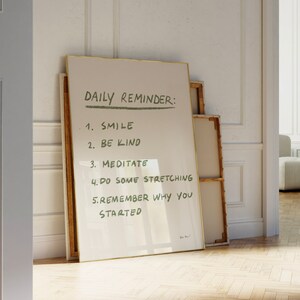 DAILY REMINDER:
1. SMILE
2. BE KIND
3. MEDITATE
4. DO SOME STRETCHING
5. REMEMBER WHY YOU
STARTED